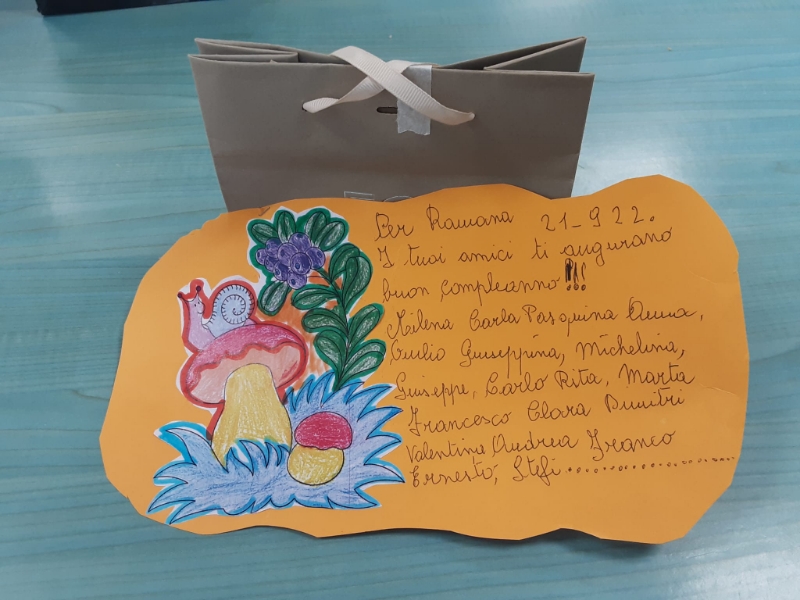 Per Ramana 21-9 22.
I tuoi amici ti augurano
buon compleanno!!!
Milena Carla Pasquina Anna,
Giulio Giuseppina, Michelina,
Giuseppe, Carlo Rita, Marta
Francesco Clara Dumitri
Valentina, Andrea Franco
Ernesto, Stefi